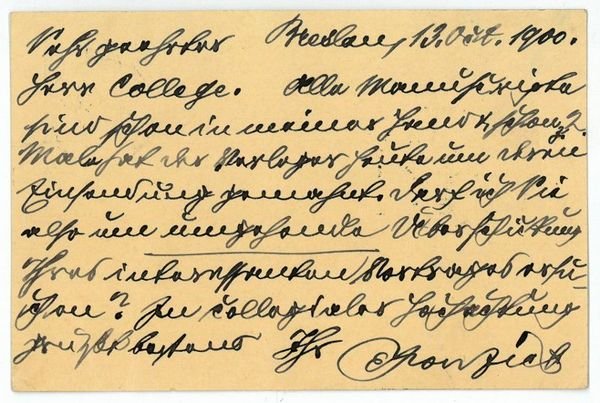 Sehr geehrter Breslau, 13. Oct. 1900.
Herr College. Alle Manuscripte
sind schon in meiner Hand u. schon 2
Male hat der Verleger heute um deren
Einsendung gemahnt. Darf ich Sie
also um umgehende Überschickung
Ihres interessanten Vortrages ersu-
chen? In collegialer Hochachtung
grüßt bestens Ihr